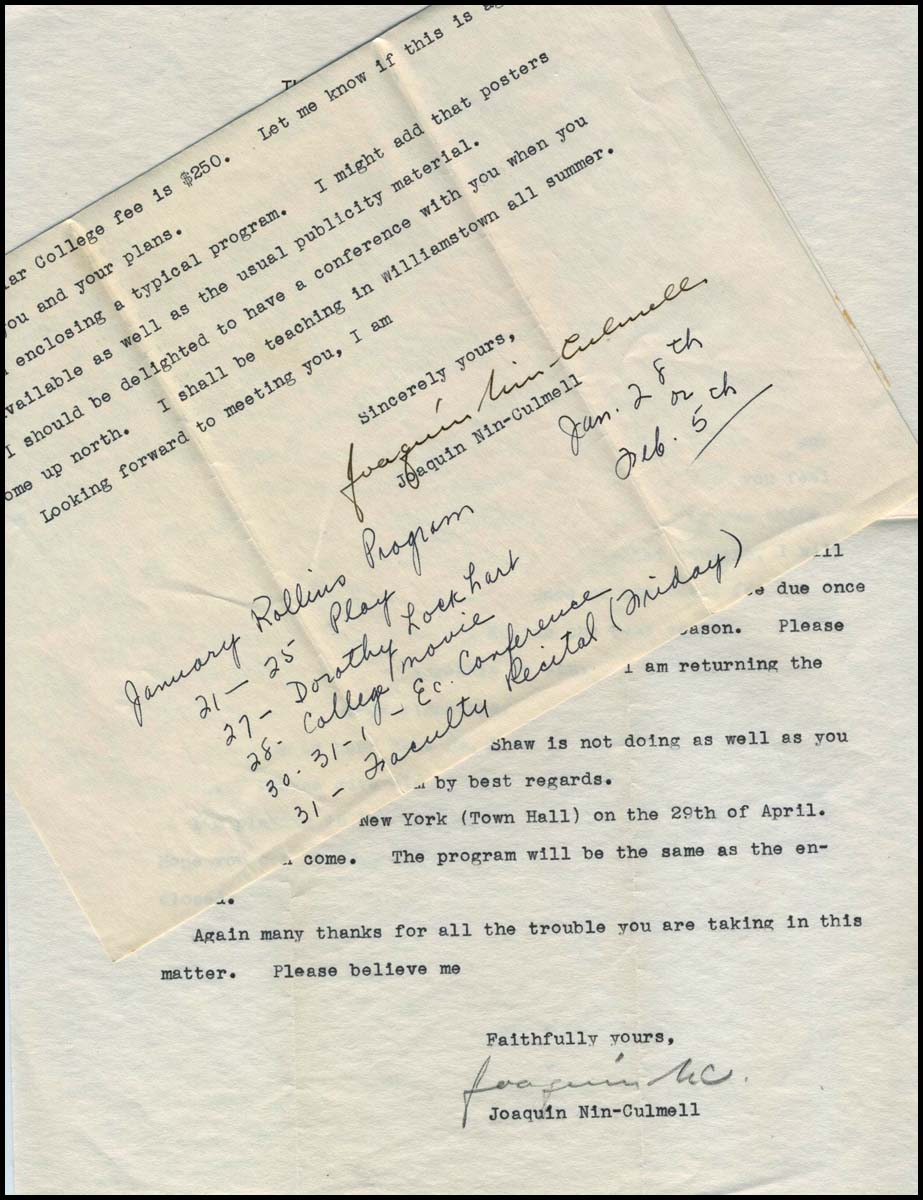 College fee is $250. Let me know if this is
you and your plans.
enclosing a typical program. I might add that posters
available as well as the usual publicity material.
I should be delighted to have a conference with you when you
come up north. I shall be teaching in Williamstown all summer.
Looking forward to meeting you, I am
Sincerely yours,
Joaquín Nin-Culmell
Joaquin Nin-Culmell
Jan. 28th
or
Feb. 5th
January Rollins Program
21-25 Play
27- Dorothy Lockhart
28- College movie
30-31-1- Ec. Conference
31- Faculty Recital (Friday)
due once
Please
I am returning the
Shaw is not doing as well as you
by best regards.
New York (Town Hall) on the 29th of April.
come. The program will be the same as the en-
Again many thanks for all the trouble you are taking in this
matter. Please believe me
Faithfully yours,
Joaquín N-C.
Joaquin Nin-Culmell